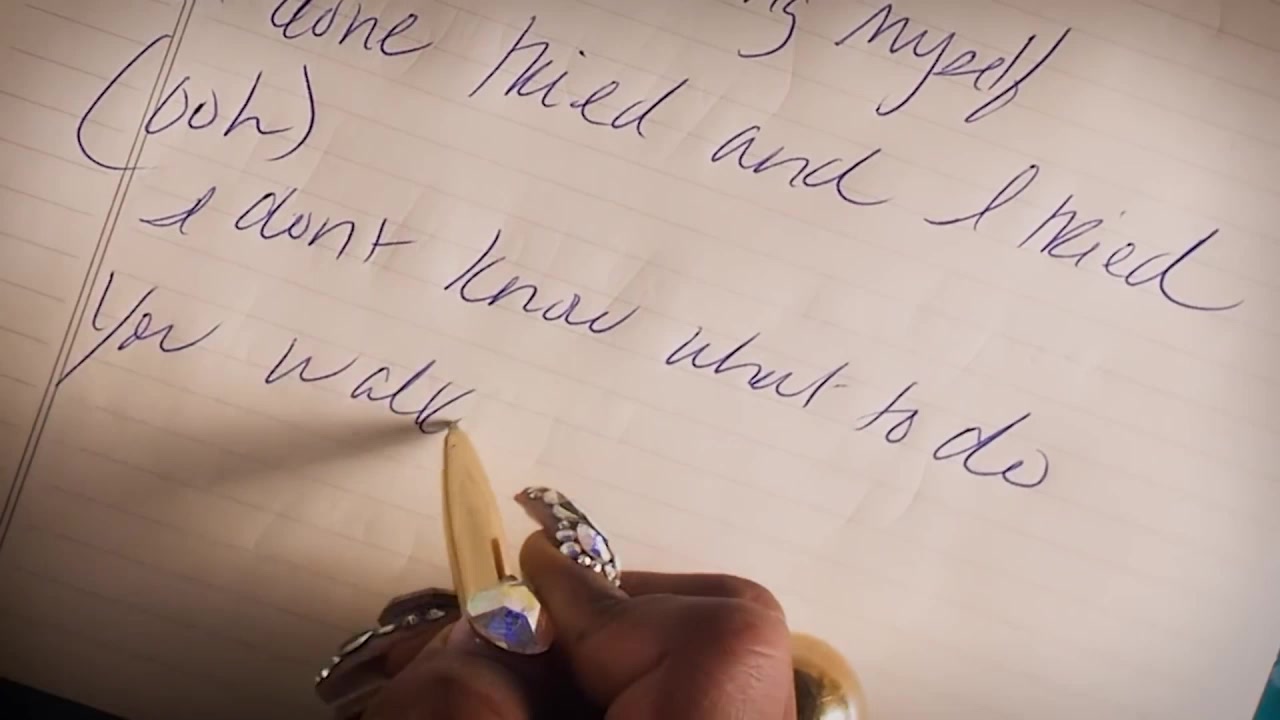 myself
done tried and I tried
(ooh)
I dont know what to do
You walk